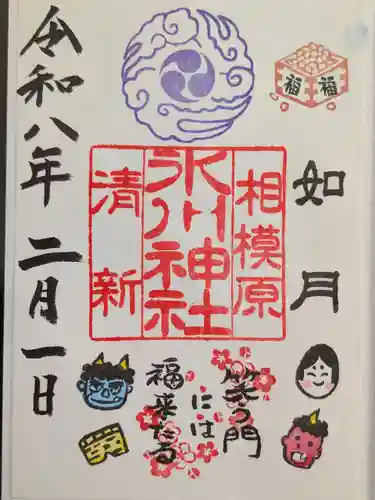 福 福
如月
相模原
氷川神社
清新
令和八年 二月一日
笑う門
には
福来たる